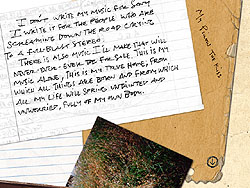 I DON'T WRITE MY MUSIC FOR SONY
I WRITE IT FOR THE PEOPLE WHO ARE
SCREAMING DOWN THE ROAD CRYING
TO A FULL-BLAST STEREO.
THERE IS ALSO MUSIC I'LL MAKE THAT WILL
NEVER-EVER-EVER BE FOR SALE. THIS IS MY
MUSIC ALONE, THIS IS MY TRUE HOME; FROM
WHICH ALL THINGS ARE BORN AND FROM WHICH
ALL MY LIFE WILL SPRING UNTAINTED AND
UNWORRIED, FULLY OF MY OWN BODY.